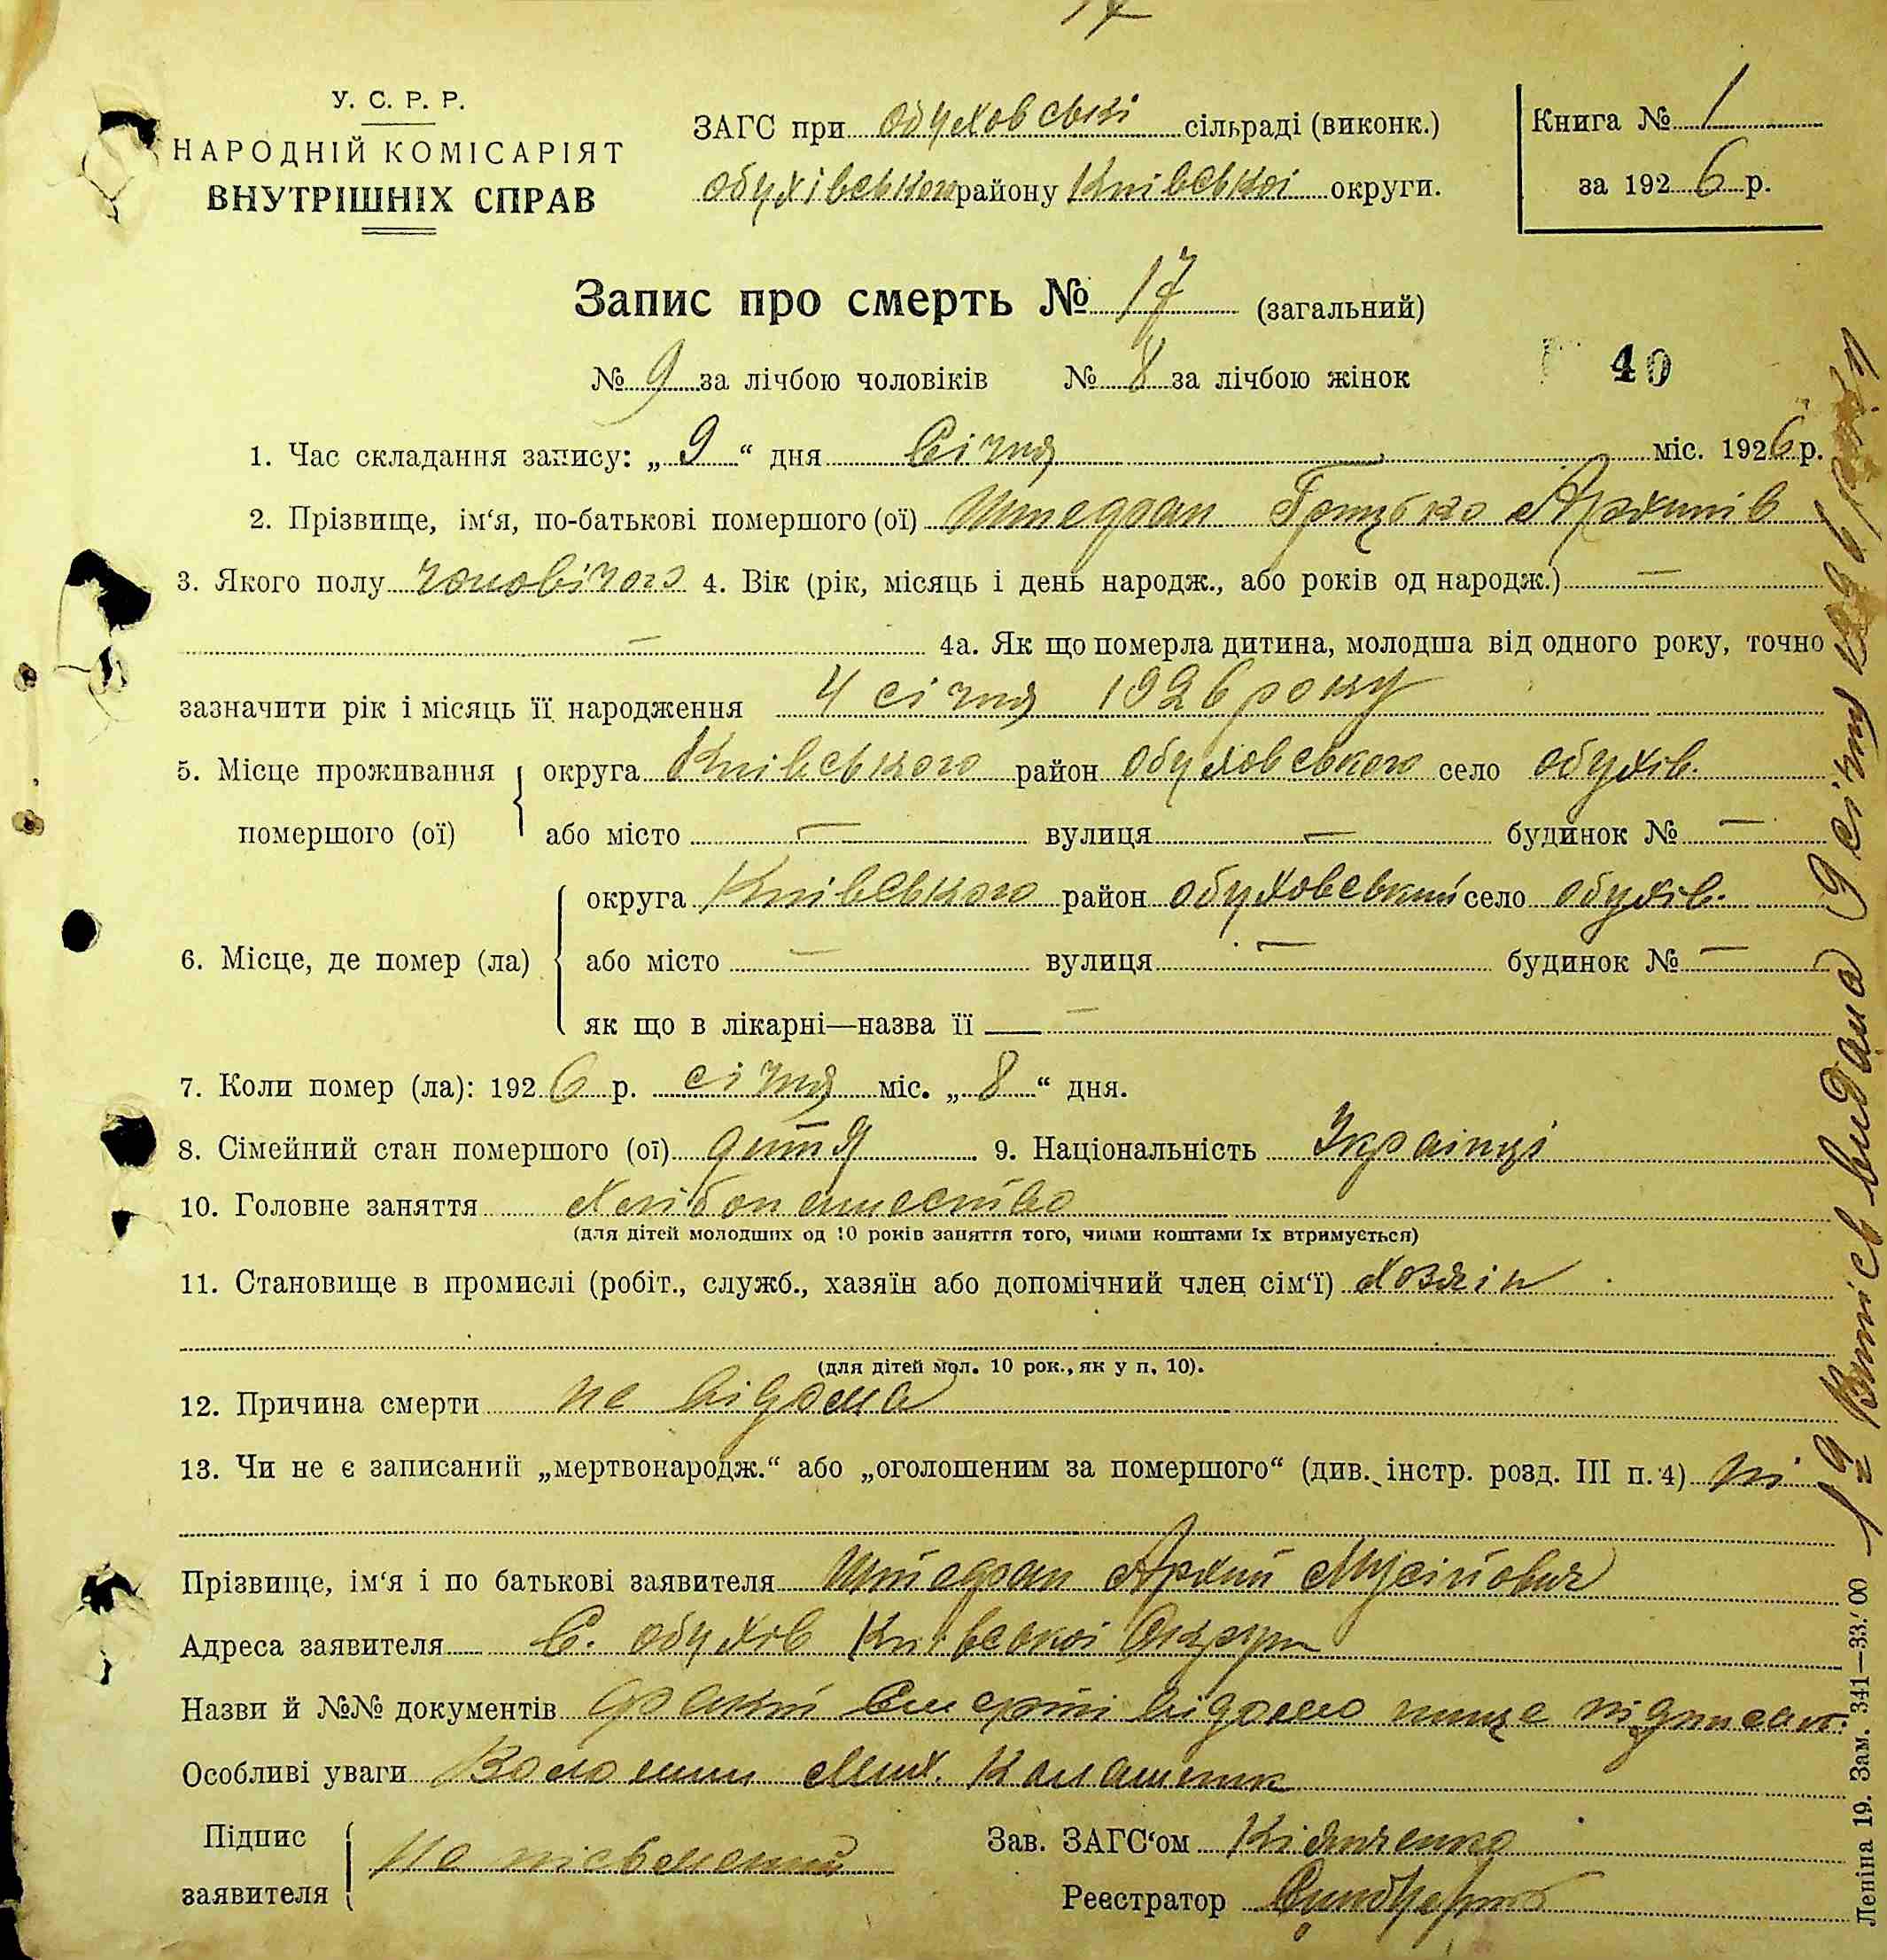 17
У. С. Р. Р.
НАРОДНІЙ КОМІСАРІЯТ
ВНУТРІШНІХ СПРАВ
ЗАГС при обуховські сільраді (виконк.)
обухівського району Київської округи.
Книга № 1
за 1926 р.
Запис про смерть № 17 (загальний)
№ 9 за лічбою чоловіків № 8 за лічбою жінок
40
1. Час складання запису: „9“ дня Січня міс. 1926 р.
2. Прізвище, ім‘я, по-батькові помершого (ої) Грицько Архипів
3. Якого полу чоловічого 4. Вік (рік, місяць і день народж., або років од народж.) —
— 4а. Як що померла дитина, молодша від одного року, точно
зазначити рік і місяць її народження 4 січня 1926 року
5. Місце проживання округа Київського район обуховського село обухів.
помершого (ої) або місто — вулиця — будинок № —
6. Місце, де помер (ла) округа Київського район обуховський село обухів.
або місто — вулиця — будинок № —
як що в лікарні—назва її —
7. Коли помер (ла): 1926 р. січня міс. „8“ дня.
8. Сімейний стан помершого (ої) дитя 9. Національність Украінці
10. Головне заняття Хлібопашество
(для дітей молодших од 10 років заняття того, чиїми коштами їх втримується)
11. Становище в промислі (робіт., служб., хазяїн або допомічний член сім‘ї) Хозяін
(для дітей мол. 10 рок., як у п. 10).
12. Причина смерти не відома
13. Чи не є записаний „мертвонародж.“ або „оголошеним за помершого“ (див. інстр. розд. III п. 4) ні
Прізвище, ім‘я і по батькові заявителя Архип Мусійович
Адреса заявителя С. обухів Київської Округи
Назви й №№ документів факт смерті відомо нище підписат.
Особливі уваги Волошин Мих.
Підпис заявителя Не письменний
Зав. ЗАГС‘ом
Реєстратор
Витяг видана 9 січня 1926 р
Леніна 19. Зам. 341—33.